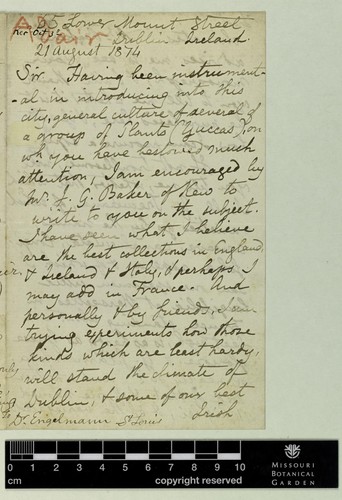 35 Lower Mount Street
Dublin Ireland
21 August 1874
Sir Having been instrument-
-al in introducing into this
city, general culture of several of
a group of Plants (Yuccas), on
wh. you have bestowed much
attention, I am encouraged by
Mr. J. G. Baker of Kew to
write to you on the subject.
I have seen what I believe
are the best collections in England,
& Ireland & Italy, & perhaps I
may add in France. And
personally & by friends, I am
trying experiments how those
kinds which are least hardy,
will stand the climate of
Dublin, & some of our best
Dr. Engelmann St Louis Irish
0 1 2 3 4 5 6 7 8 9 10
cm copyright reserved
MISSOURI
BOTANICAL
GARDEN